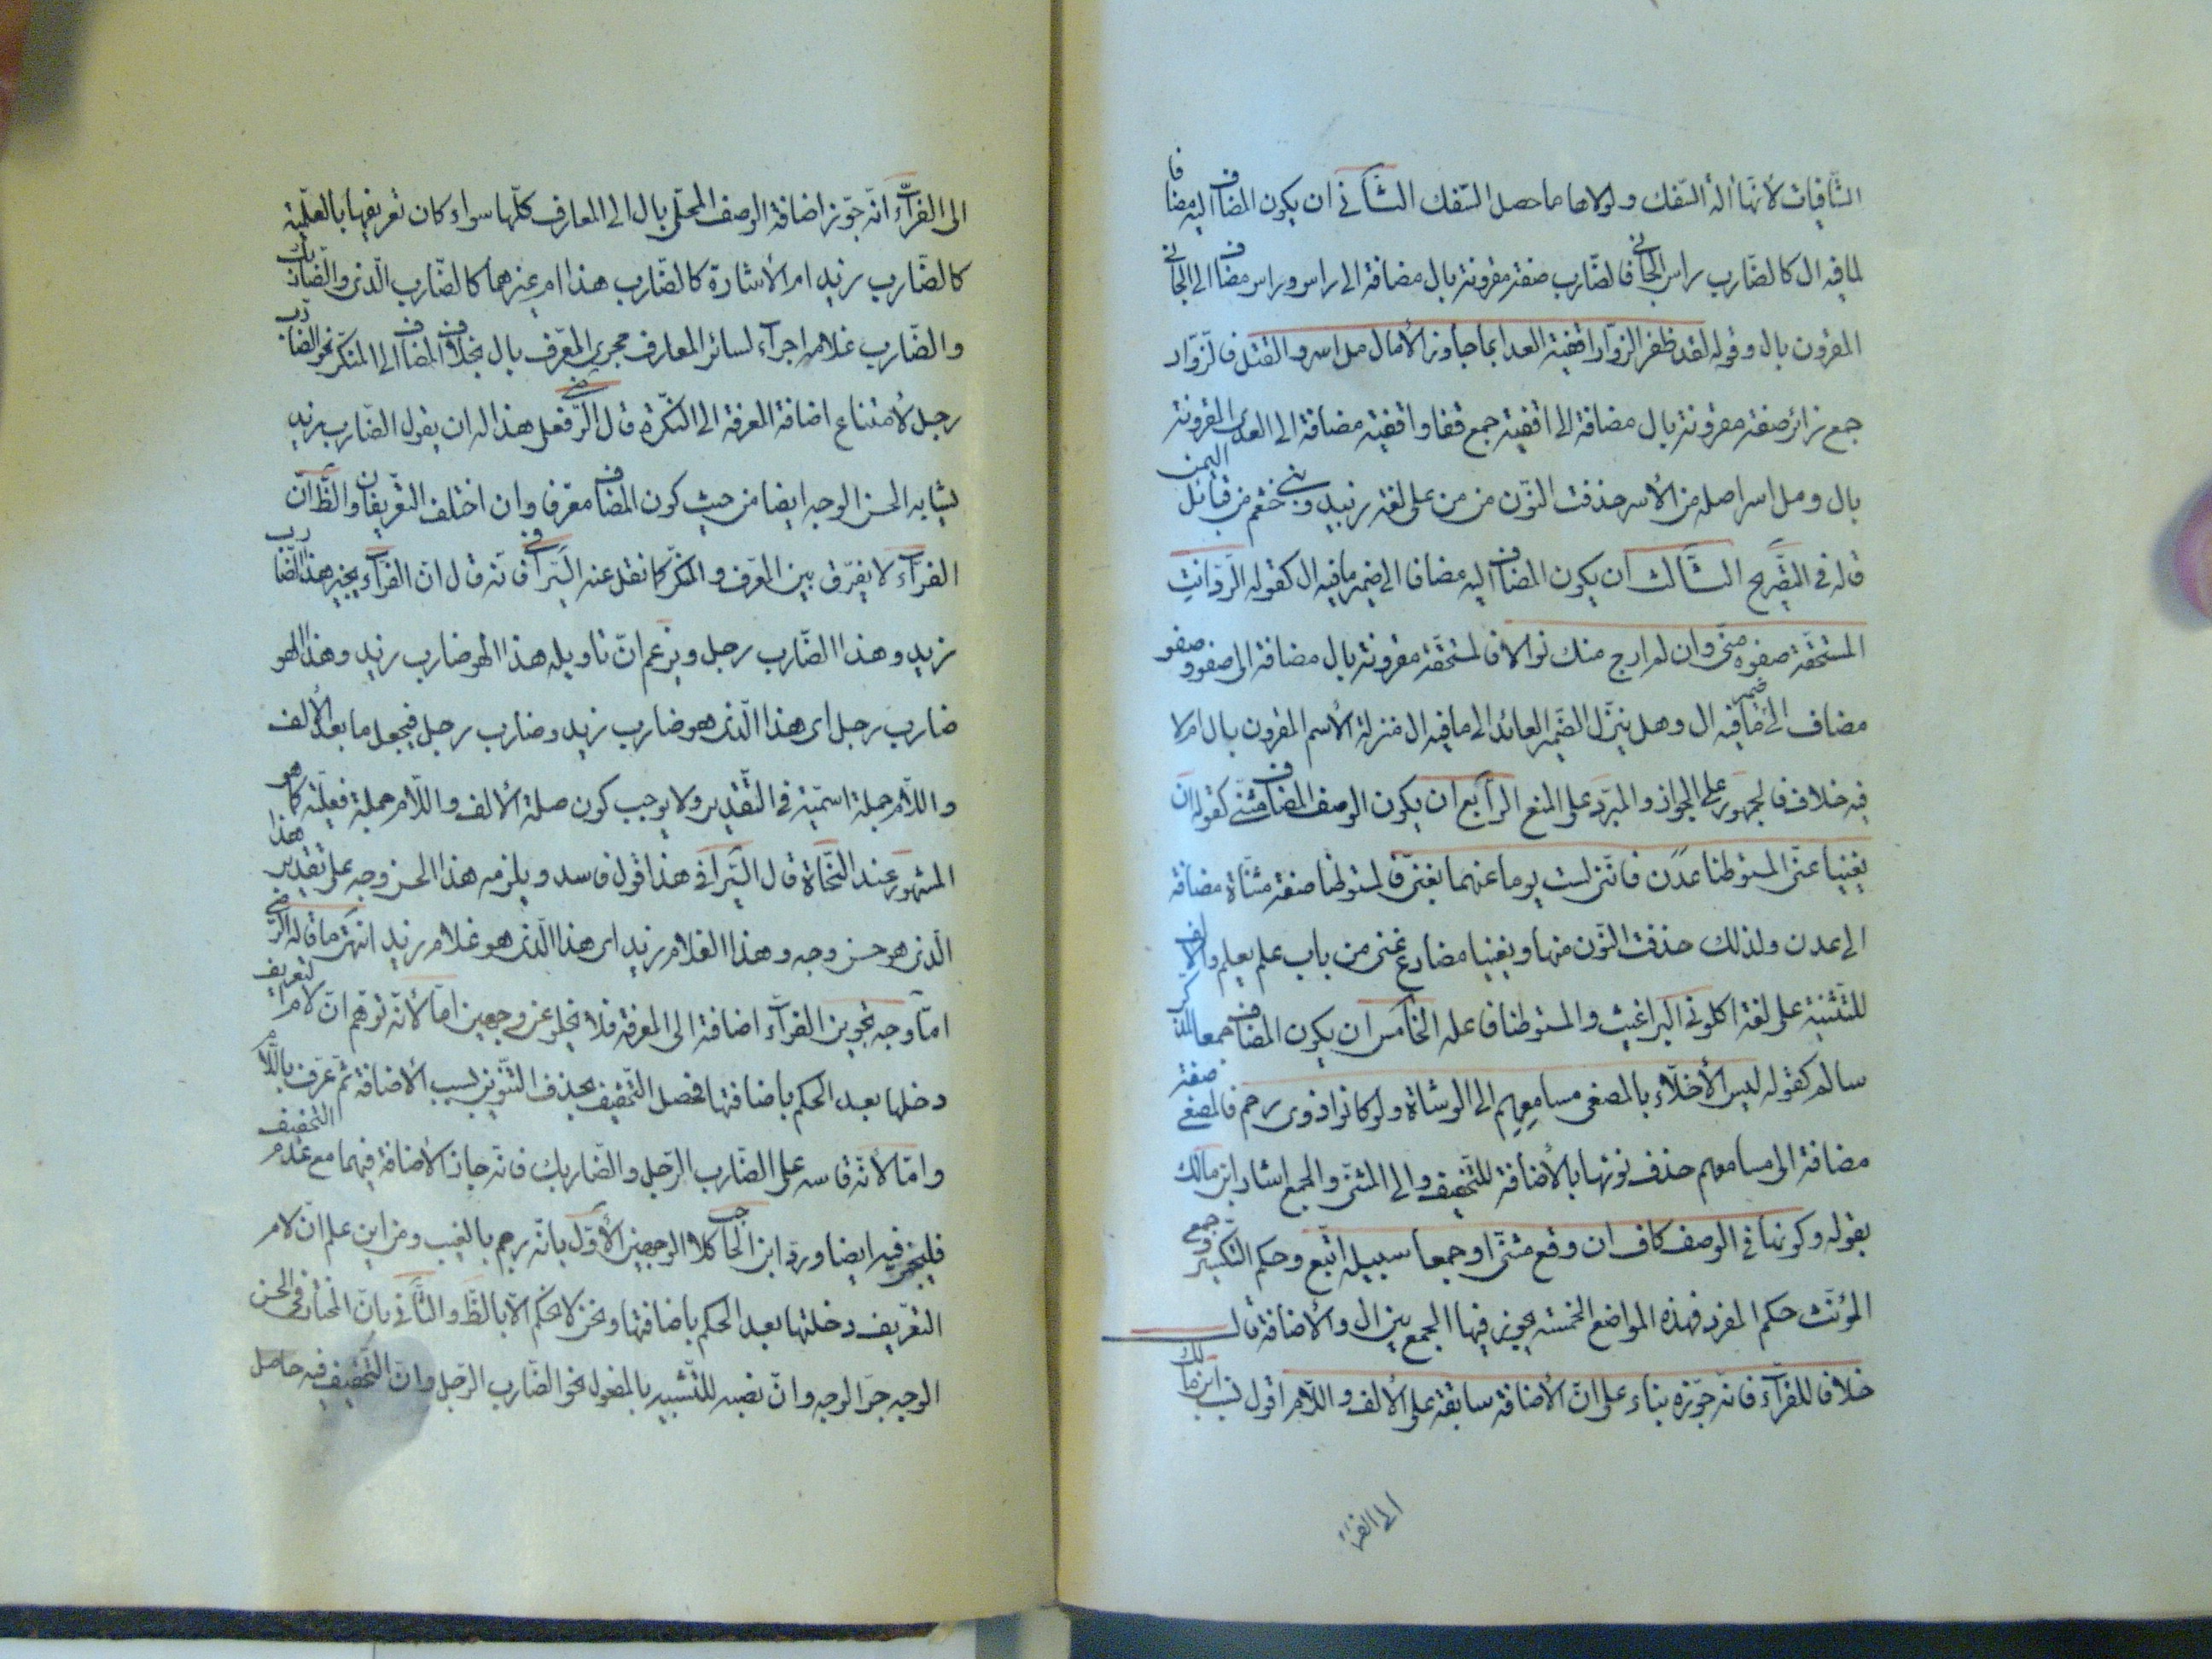 الشافيات لأنها آلة السفك ولولاها ما حصل السفك الثاني ان يكون المضاف اليه مضافا
لما فيه ال كالضارب راس الجاني فالضارب صفة مقرونة بال مضافة الى راس وراس مضاف الى الجاني
المقرون بال وقوله لقد ظفر الزوار اقفية العدا بما جاوز الآمال مل اسر والقتل فالزوار
جمع زائر صفة مقرونة بال مضافة الى اقفية جمع قفا واقفية مضافة الى العدى المقرونة
بال ومل اسر اصله من الأسر حذفت النون من من على لغة زبيد وبني خثعم من قبائل اليمن
قاله في التصريح الثالث ان يكون المضاف اليه مضافا الى ضمير ما فيه ال كقوله الود انت
المستحقة صفوه منى وان لم ارج منك نوالا فالمستحقة مقرونة بال مضافة الى صفو وصفو
مضاف الى ضمير ما فيه ال وهل ينزل الضمير العائد الى ما فيه ال منزلة الأسم المقرون بال ام لا
فيه خلاف فالجمهور على الجواز والمبرد على المنع الرابع ان يكون الوصف المضاف مثنى كقوله ان
يغنيا عنى المستوطنا عدن فانني لست يوما عنهما بغنى فالمستوطنا صفة مثناة مضافة
الى عدن ولذلك حذفت النون منها ويغنيا مضارع غنى من باب علم يعلم والالف
للتثنية على لغة اكلوني البراغيث والمستوطنا فاعله الخامس ان يكون المضاف جمعا لمذكر
سالم كقوله ليس الأخلاء بالمصغى مسامعهم الى الوشاة ولو كانوا ذوى رحم فالمصغى صفة
مضافة الى مسامعهم حذف نونها بالأضافة للتخفيف والى المثنى والجمع اشار ابن مالك
بقوله وكونها في الوصف كاف ان وقع مثنى او جمعا سبيله اتبع وحكم التكسير وجمع
المؤنث حكم المفرد فهذه المواضع الخمسة يجوز فيها الجمع بين ال والأضافة قال
خلافا للفراء فانه جوزه بناء على ان الأضافة سابقة على الألف واللام اقول نسب ابن مالك
الى الفراء
الى الفراء انه جوز اضافة الوصف المحلى بال الى المعارف كلها سواء كان تعريفها بالعلمية
كالضارب زيد ام الأشارة كالضارب هذا ام غيرهما كالضارب الذى والضاربك
والضارب غلامه اجراء لسائر المعارف مجرى المعرف بال بخلاف المضاف الى المنكر نحو الضارب
رجل لأمتناع اضافة المعرفة الى النكرة قال الرضي فعل هذا له ان يقول الضارب زيد
يشابه الحسن الوجه ايضا من حيث كون المضاف معرفا وان اختلف التعريفان والظ ان
الفراء لا يفرق بين المعرف والمنكر كما نقل عنه السيرافي فانه قال ان الفراء يجيز هذا الضارب
زيد وهذا الضارب رجل ويزعم ان تاويله هذا الهو ضارب زيد وهذا الهو
ضارب رجل اى هذا الذى هو ضارب زيد وضارب رجل فيجعل ما بعد الألف
واللام جملة اسمية في التقدير ولا يوجب كون صلة الألف واللام جملة فعلية كما هو
المشهور عند النحاة قال السيرافي هذا قول فاسد ويلزمه هذا الحسن وجه على تقدير هذا
الذى هو حسن وجه وهذا الغلام زيد اى هذا الذى هو غلام زيد انتهى ما قاله الرضي
اما وجه تجويز الفراء اضافة الى المعرفة فلا يخلو عن وجهين اما لأنه توهم ان لام التعريف
دخلها بعد الحكم باضافتها فحصل التخفيف بحذف التنوين بسبب الأضافة ثم عرف باللام
واما لأنه قاسه على الضارب الرجل والضاربك فانه جاز الأضافة فيهما مع عدم التخفيف
فليجز فيه ايضا ورد ابن الحاجب كلا الوجهين الأول بانه رجم بالغيب ومن اين علم ان لام
التعريف دخلتها بعد الحكم باضافتها ونحن لا نحكم الا بالظ والثاني بان المختار في الحسن
الوجه جر الوجه وان نصبه للتشبيه بالمفعول نحو الضارب الرجل وان التخفيف فيه حاصل